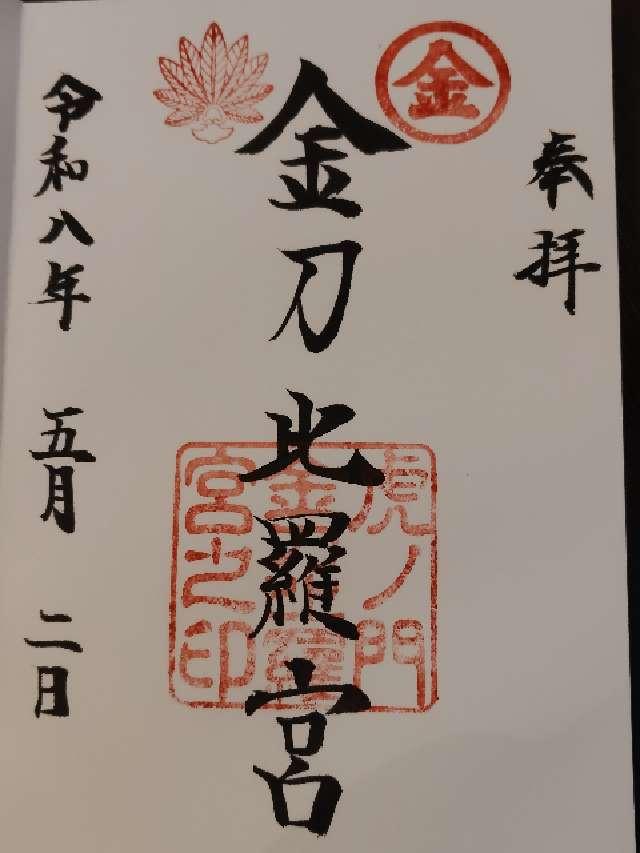 奉拝
金
金刀比羅宮
虎ノ門
金刀比羅
宮之印
令和八年 五月 二日